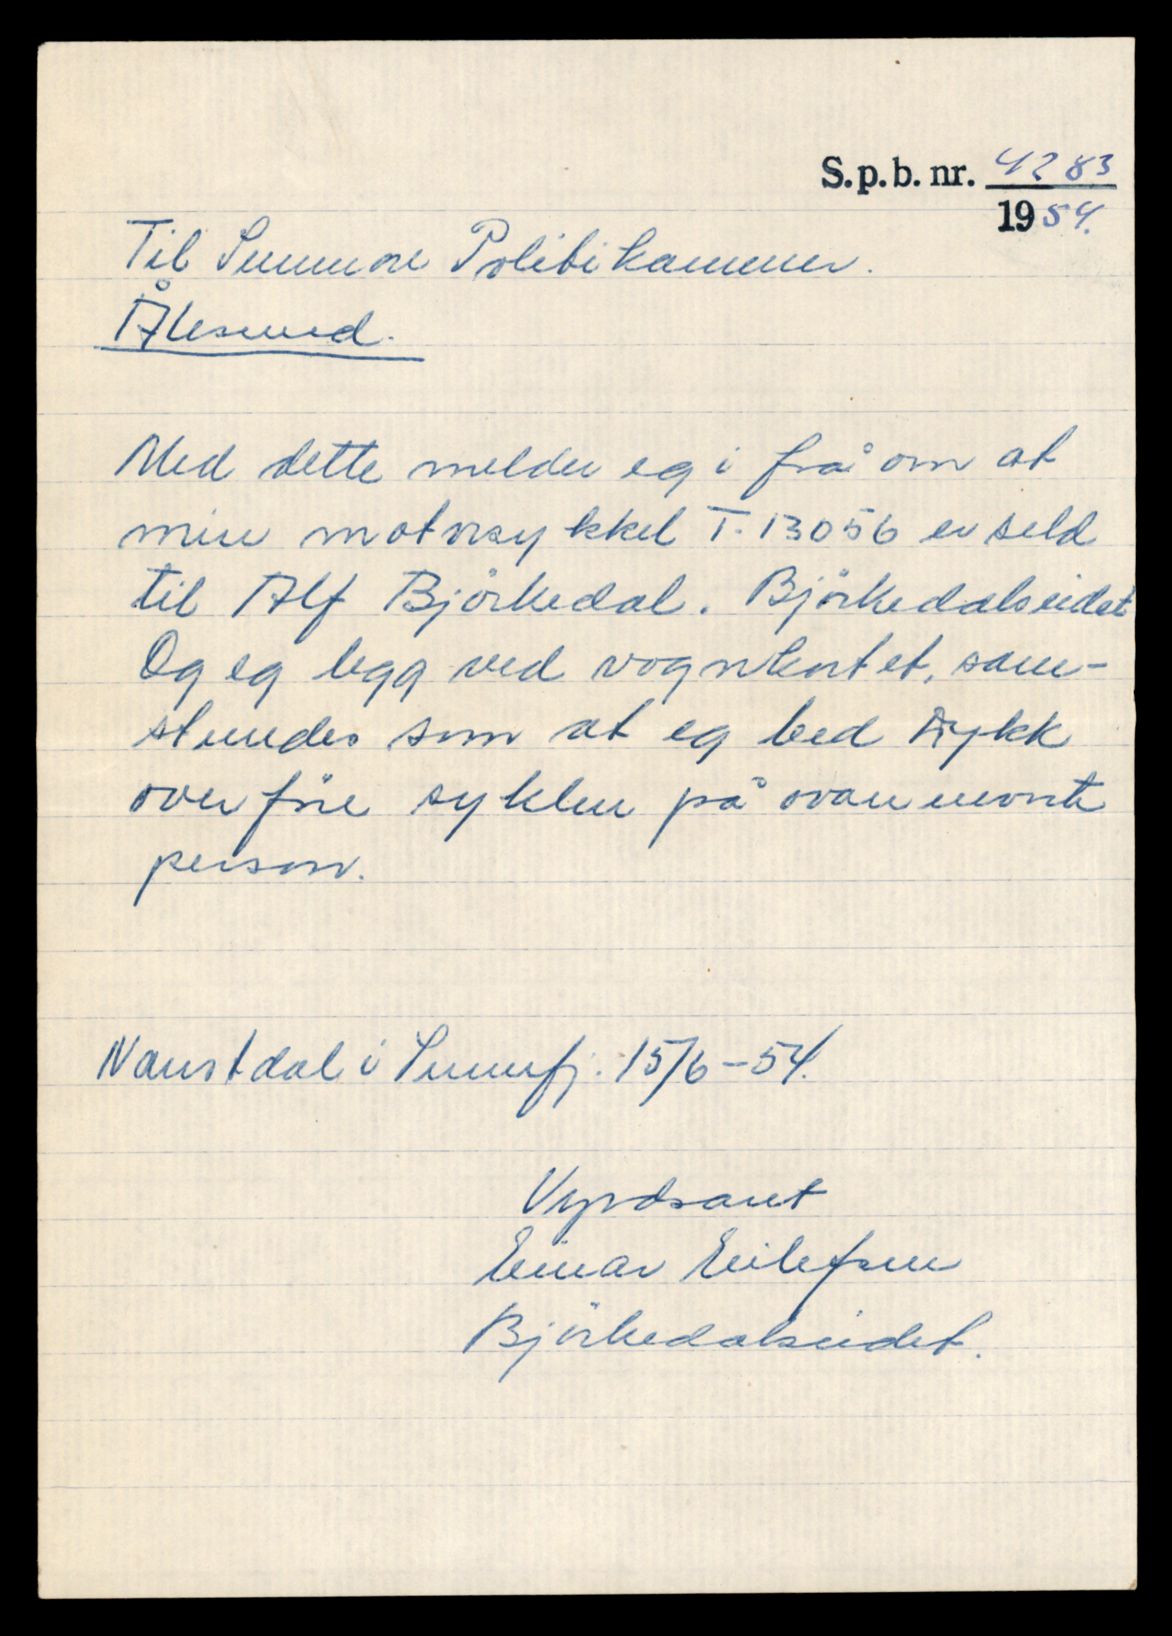 S.p.b. nr. 4283
1954.
Til Sunnmøre Politikammer.
Ålesund.
Med dette melder eg i frå om at
min motorsykkel T-13056 er seld
til Alf Björkedal. Björkedalseidet
Og eg legg ved vognkortet, sam-
stundes som at eg bed Dykk
overføre syklen på ovannevnte
person.
Naustdal i Sunnfj. 15/6-54.
Vyrdsamt
Einar Eilefsen
Björkedalseidet.